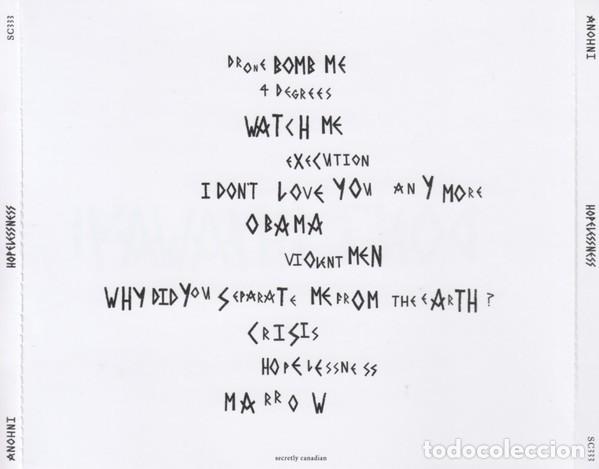 DRONE BOMB ME
4 DEGREES
WATCH ME
EXECUTION
I DONT LOVE YOU ANYMORE
OBAMA
VIOLENT MEN
WHY DID YOU SEPARATE ME FROM THE EARTH?
CRISIS
HOPELESSNESS
MARROW
secretly canadian
SC333
HOPELESSNESS
ANOHNI
ANOHNI
HOPELESSNESS
SC333
todocoleccion